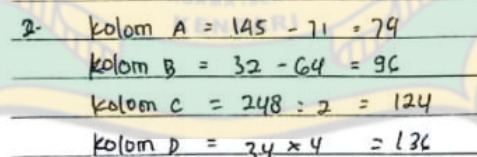 2. Kolom A = 145 - 71 = 74
Kolom B = 32 - 64 = 96
Kolom C = 248 : 2 = 124
Kolom D = 34 x 4 = 136